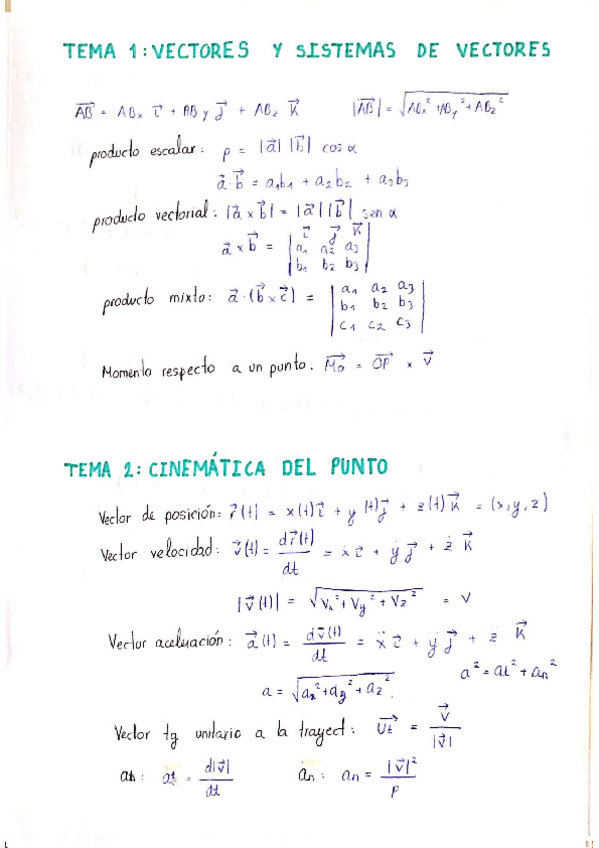 TEMA 1: VECTORES Y SISTEMAS DE VECTORES
$\vec{AB} = AB_x \vec{i} + AB_y \vec{j} + AB_z \vec{k}$ $|\vec{AB}| = \sqrt{AB_x^2 + AB_y^2 + AB_z^2}$
producto escalar: $p = |\vec{a}| |\vec{b}| \cos \alpha$
$\vec{a} \cdot \vec{b} = a_1 b_1 + a_2 b_2 + a_3 b_3$
producto vectorial: $|\vec{a} \times \vec{b}| = |\vec{a}| |\vec{b}| \text{ sen } \alpha$
$\vec{a} \times \vec{b} = \begin{vmatrix} \vec{i} & \vec{j} & \vec{k} \\ a_1 & a_2 & a_3 \\ b_1 & b_2 & b_3 \end{vmatrix}$
producto mixto: $\vec{a} \cdot (\vec{b} \times \vec{c}) = \begin{vmatrix} a_1 & a_2 & a_3 \\ b_1 & b_2 & b_3 \\ c_1 & c_2 & c_3 \end{vmatrix}$
Momento respecto a un punto: $\vec{M_o} = \vec{OP} \times \vec{v}$
TEMA 2: CINEMÁTICA DEL PUNTO
Vector de posición: $\vec{r}(t) = x(t)\vec{i} + y(t)\vec{j} + z(t)\vec{k} = (x, y, z)$
Vector velocidad: $\vec{v}(t) = \frac{d\vec{r}(t)}{dt} = \dot{x}\vec{i} + \dot{y}\vec{j} + \dot{z}\vec{k}$
$|\vec{v}(t)| = \sqrt{v_x^2 + v_y^2 + v_z^2} = v$
Vector aceleración: $\vec{a}(t) = \frac{d\vec{v}(t)}{dt} = \ddot{x}\vec{i} + \ddot{y}\vec{j} + \ddot{z}\vec{k}$
$a = \sqrt{a_x^2 + a_y^2 + a_z^2}$ $a^2 = a_t^2 + a_n^2$
Vector tg unitario a la trayect: $\vec{u_t} = \frac{\vec{v}}{|\vec{v}|}$
at: $a_t = \frac{d|\vec{v}|}{dt}$ an: $a_n = \frac{|\vec{v}|^2}{\rho}$